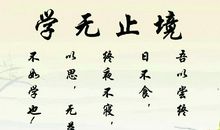 学无止境
吾以尝终
日不食，
终夜不寝，
以思，无益
不如学也，